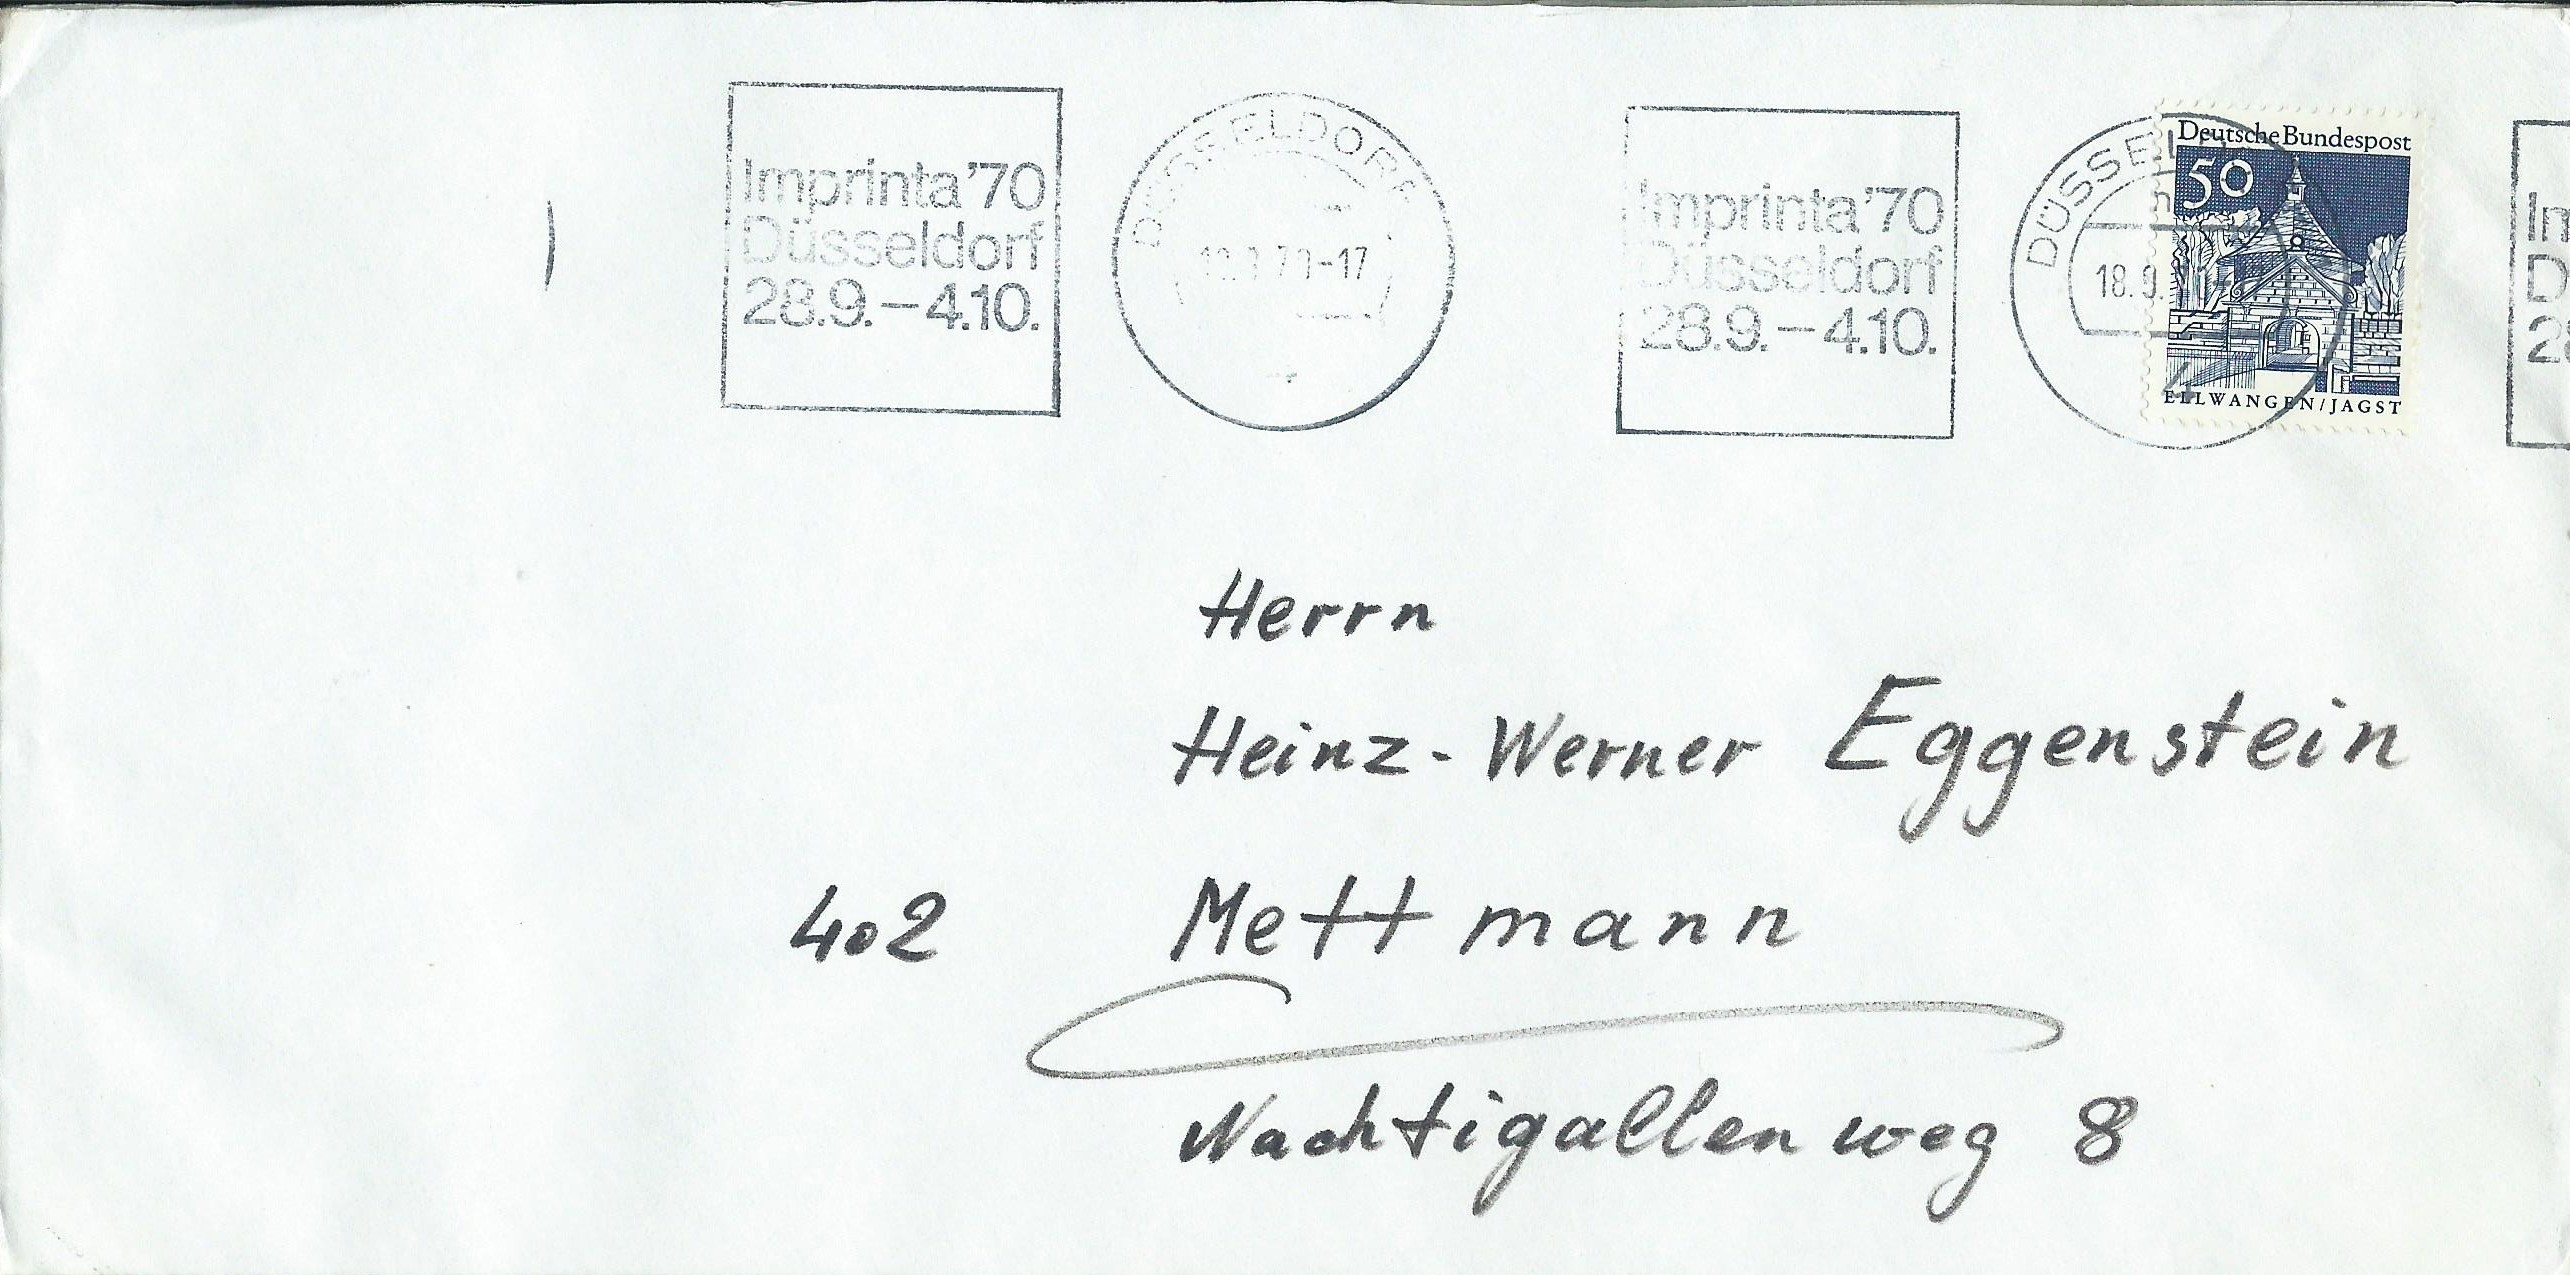 Imprinta '70
Düsseldorf
28.9.–4.10.
DÜSSELDORF
-17
Imprinta '70
Düsseldorf
28.9.–4.10.
DÜSSEL
18.9.
4
Deutsche Bundespost
50
ELLWANGEN/JAGST
Im
D
28
Herrn
Heinz-Werner Eggenstein
402 Mettmann
Nachtigallenweg 8